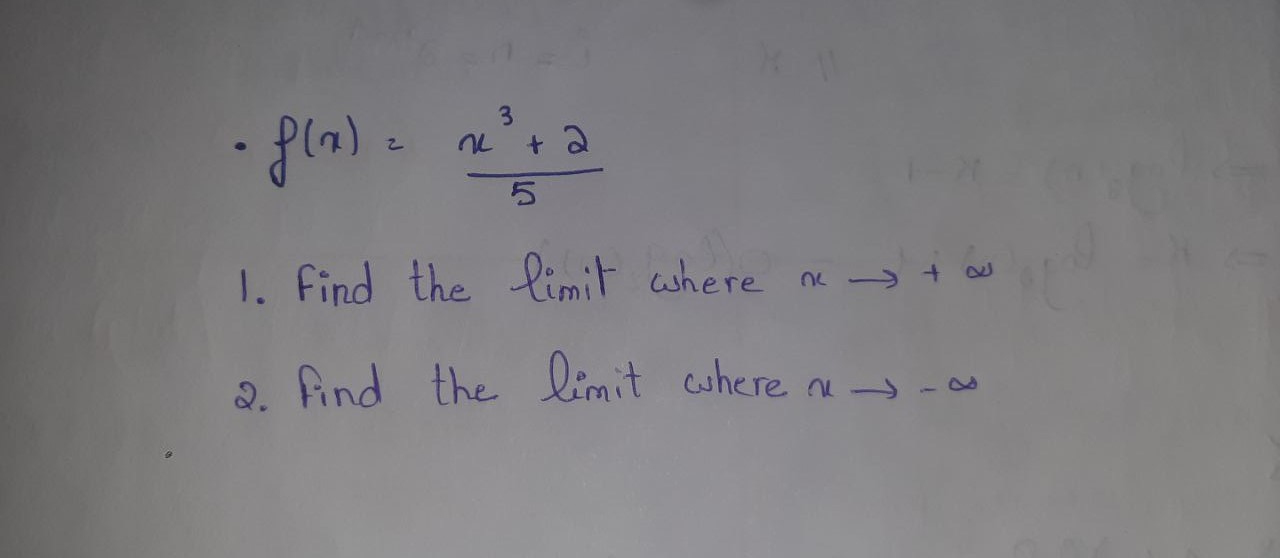 • f(x) = x³ + 2
5
1. Find the limit where x → + ∞
2. Find the limit where x → - ∞